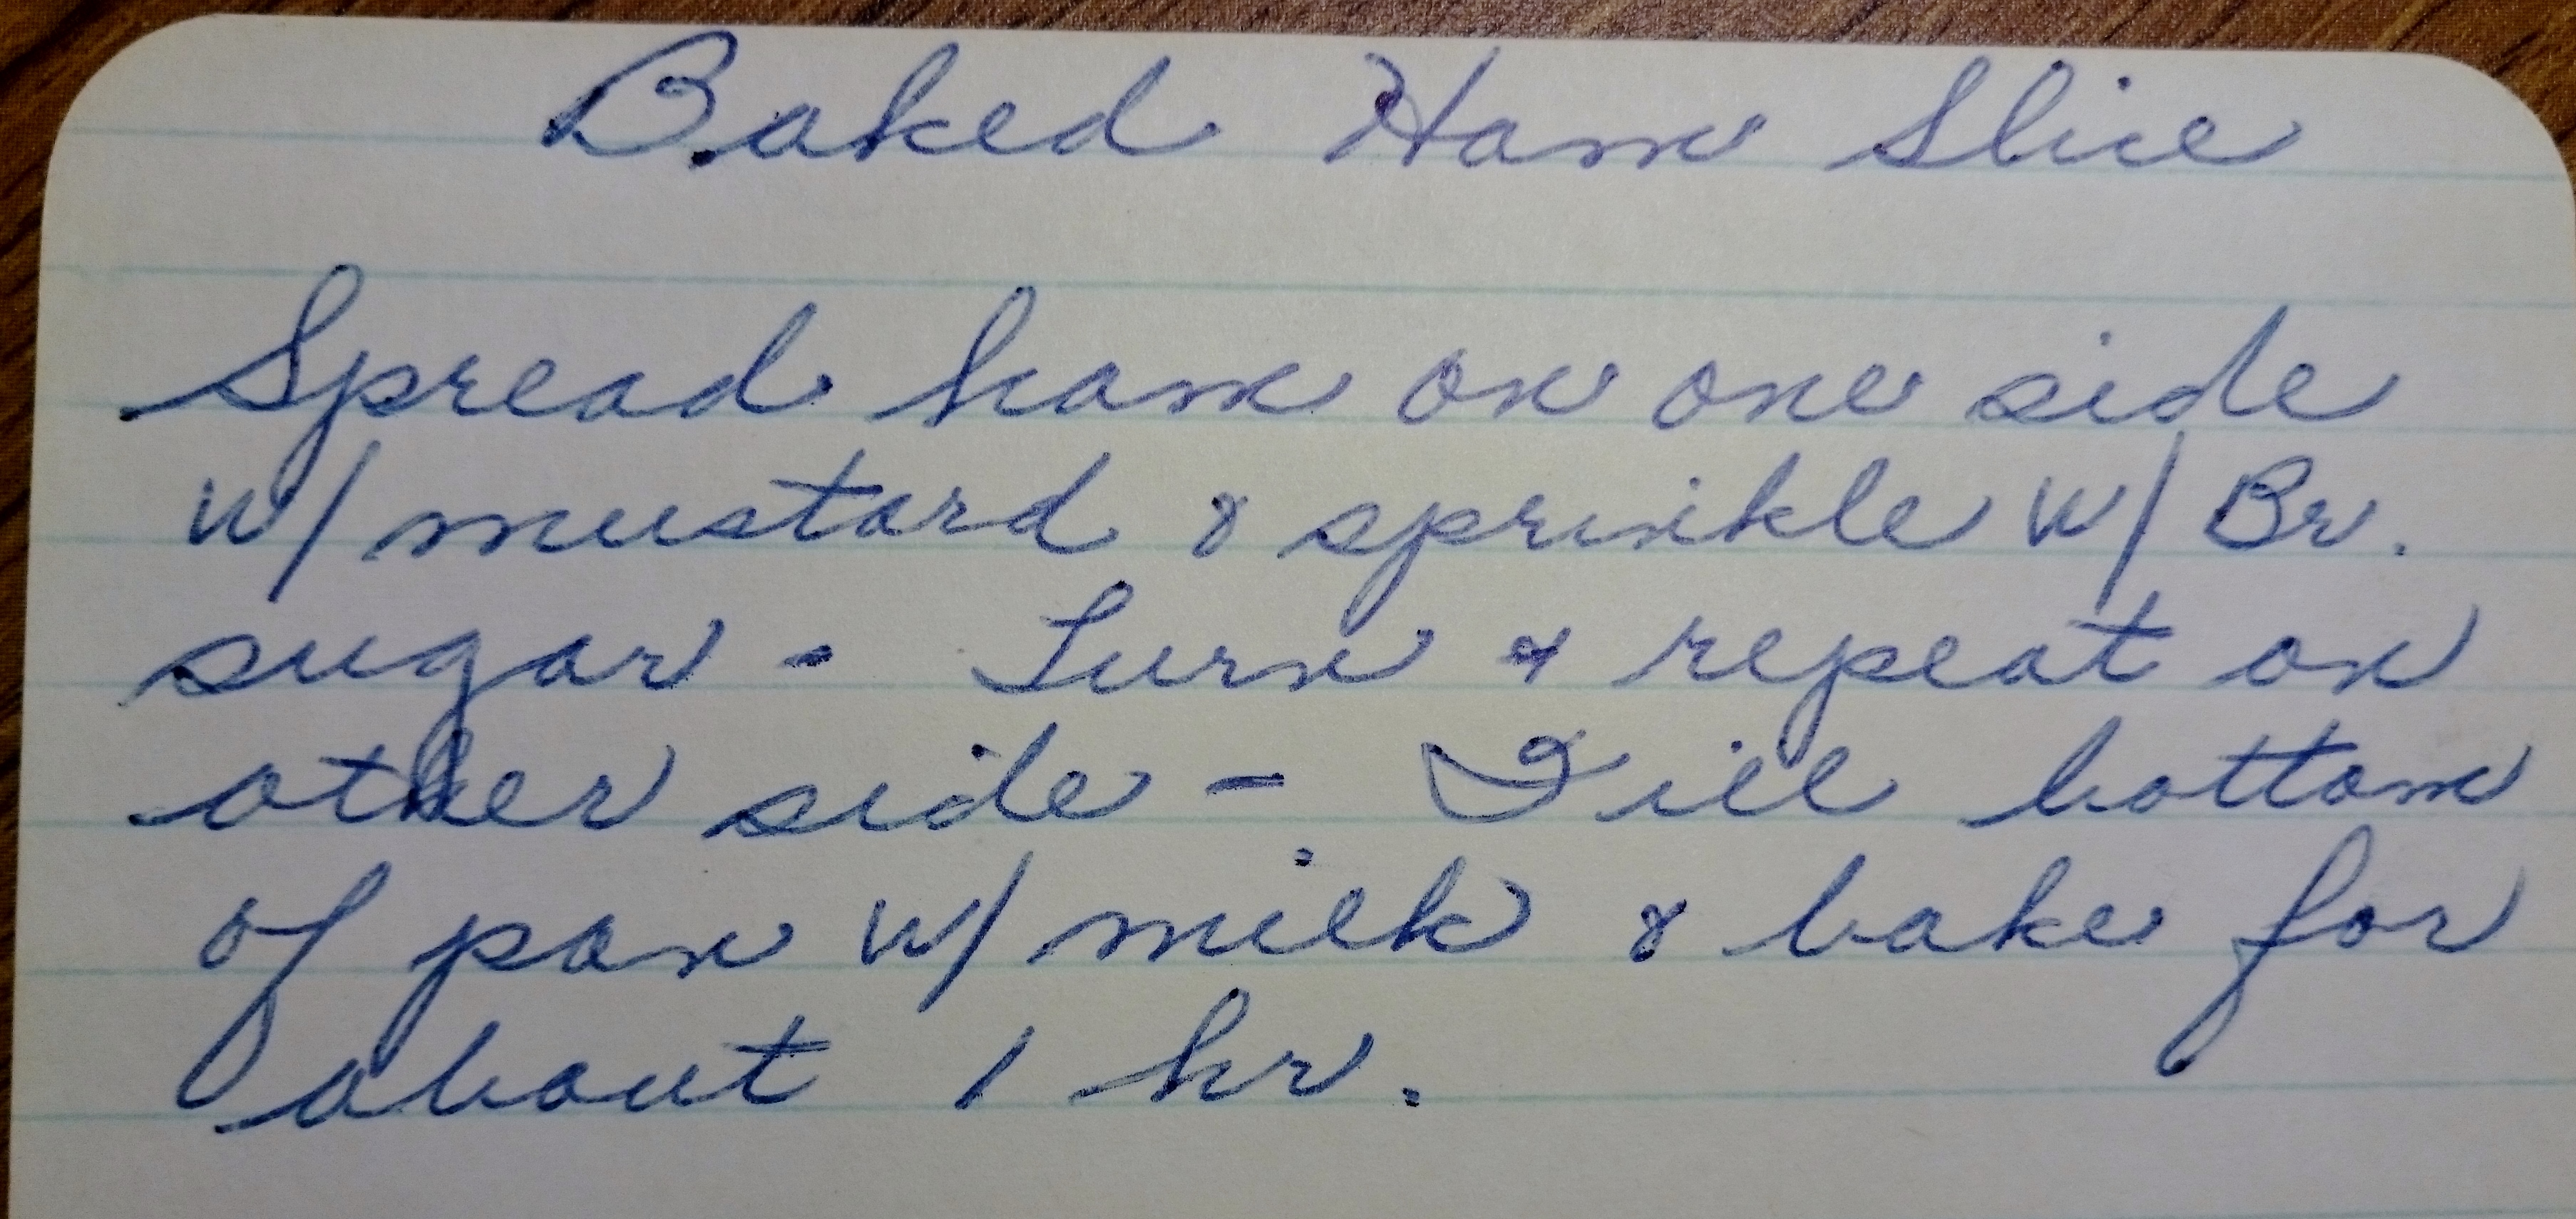 Baked Ham Slice
Spread ham on one side
w/ mustard & sprinkle w/ Br.
sugar - Turn & repeat on
other side - Fill bottom
of pan w/ milk & bake for
about 1 hr.